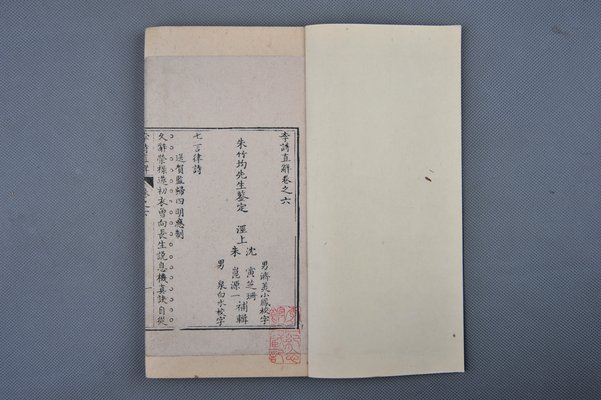 李詩直解卷之六
男濟美小鳳校字
沈 寅芝珊
朱竹均先生鑒定 涇上 補輯
朱 崑源一
男 泉白水校字
七言律詩
送賀監歸四明應制
久辭榮祿遂初衣曾向長生說息機真訣自從